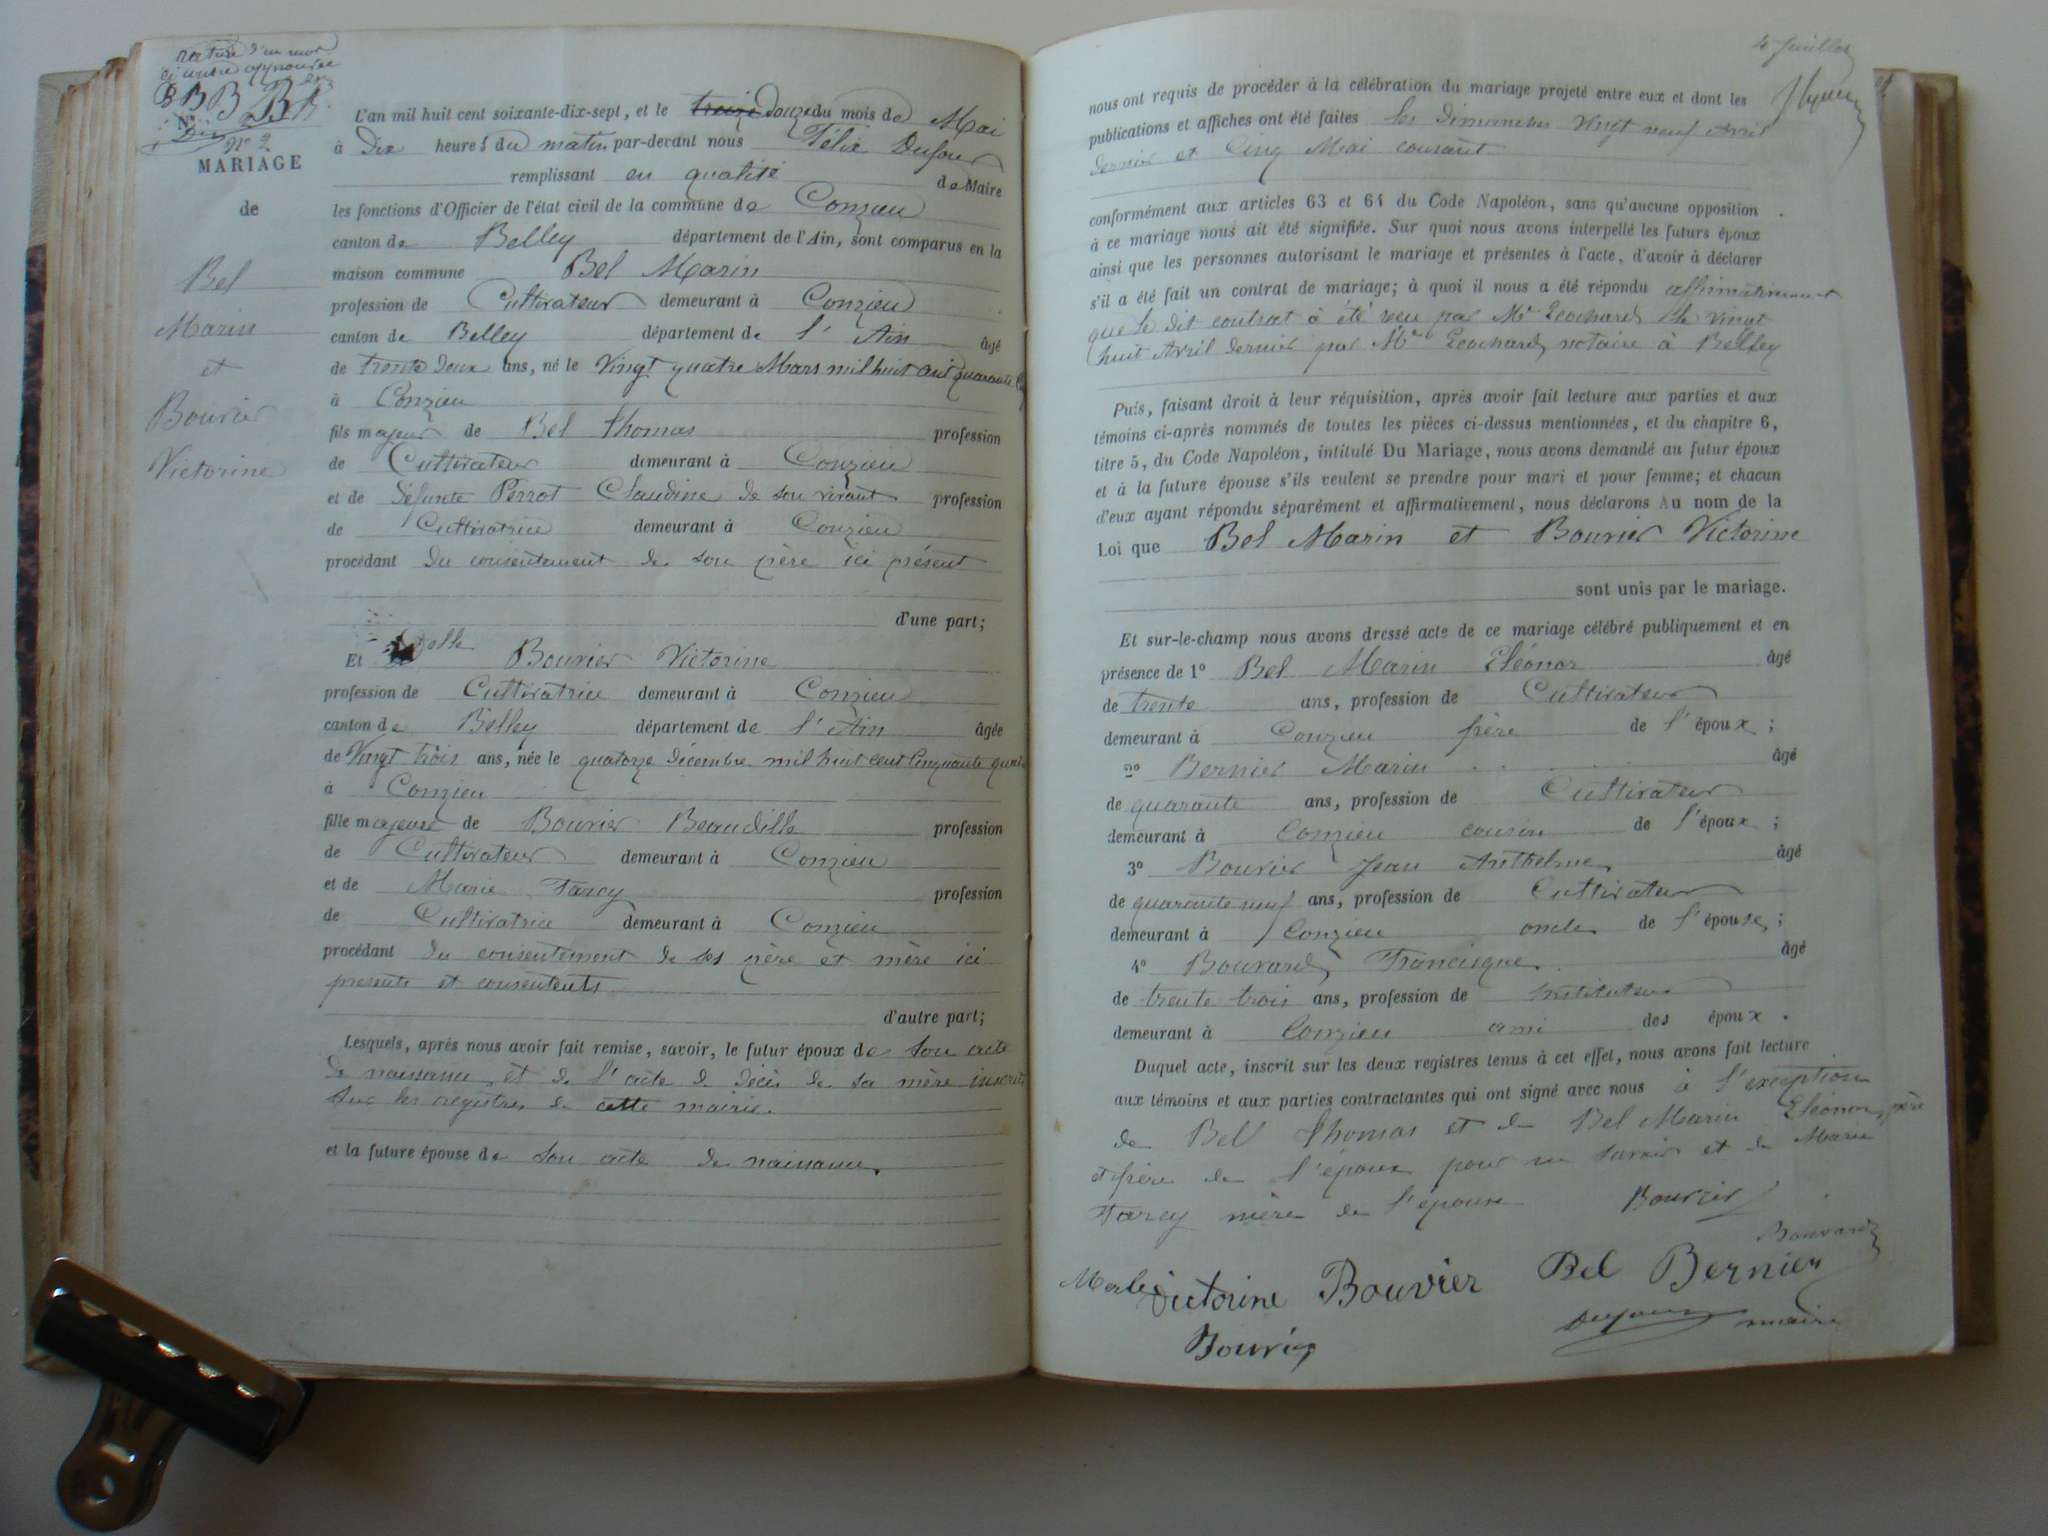 rature d'un mot
ci contre approuvée
B B B B
N°
N° 2
MARIAGE
de
Bel
Marin
et
Bouvier
Victorine
L'an mil huit cent soixante-dix-sept, et le treize douze du mois de Mai
à Dix heures du matin par-devant nous Félix Dufour
remplissant en qualité de Maire
les fonctions d'Officier de l'état civil de la commune de Conzieu
canton de Belley département de l'Ain, sont comparus en la
maison commune Bel Marin
profession de Cultivateur demeurant à Conzieu
canton de Belley département de l'Ain âgé
de trente deux ans, né le Vingt quatre Mars mil huit cent quarante
à Conzieu
fils majeur de Bel Thomas profession
de Cultivateur demeurant à Conzieu
et de défunte Perrot Claudine de son vivant profession
de Cultivatrice demeurant à Conzieu
procédant du consentement de son père ici présent
d'une part;
Et delle Bouvier Victorine
profession de Cultivatrice demeurant à Conzieu
canton de Belley département de l'Ain âgée
de Vingt trois ans, née le quatorze décembre mil huit cent cinquante quatre
à Conzieu
fille majeure de Bouvier Beaudille profession
de Cultivateur demeurant à Conzieu
et de Marie Tarcy profession
de Cultivatrice demeurant à Conzieu
procédant du consentement de ses père et mère ici
presents et consentents
d'autre part;
Lesquels, après nous avoir fait remise, savoir, le futur époux de son acte
de naissance et de l'acte de décès de sa mère inscrits
sur les registres de cette mairie.
et la future épouse de son acte de naissance.
4e feuillet
nous ont requis de procéder à la célébration du mariage projeté entre eux et dont les
publications et affiches ont été faites les dimanches vingt neuf Avril
dernier et Cinq Mai courant
conformément aux articles 63 et 64 du Code Napoléon, sans qu'aucune opposition
à ce mariage nous ait été signifiée. Sur quoi nous avons interpellé les futurs époux
ainsi que les personnes autorisant le mariage et présentes à l'acte, d'avoir à déclarer
s'il a été fait un contrat de mariage; à quoi il nous a été répondu affirmativement
que le dit contrat à été recu par Me Geochard le vingt
huit Avril dernier par Me Geochard notaire à Belley
Puis, faisant droit à leur réquisition, après avoir fait lecture aux parties et aux
témoins ci-après nommés de toutes les pièces ci-dessus mentionnées, et du chapitre 6,
titre 5, du Code Napoléon, intitulé Du Mariage, nous avons demandé au futur époux
et à la future épouse s'ils veulent se prendre pour mari et pour femme; et chacun
d'eux ayant répondu séparément et affirmativement, nous déclarons Au nom de la
Loi que Bel Marin et Bouvier Victorine
sont unis par le mariage.
Et sur-le-champ nous avons dressé acte de ce mariage célébré publiquement et en
présence de 1° Bel Marin Eléonor âgé
de trente ans, profession de Cultivateur
demeurant à Conzieu frère de l'époux;
2° Bernier Marin âgé
de quarante ans, profession de Cultivateur
demeurant à Conzieu cousin de l'époux;
3° Bouvier Jean Anthelme âgé
de quarante neuf ans, profession de Cultivateur
demeurant à Conzieu oncle de l'épouse;
4° Bouvard Francisque âgé
de trente trois ans, profession de Instituteur
demeurant à Conzieu ami des époux.
Duquel acte, inscrit sur les deux registres tenus à cet effet, nous avons fait lecture
aux témoins et aux parties contractantes qui ont signé avec nous à l'exeception
de Bel Thomas et de Bel Marin Eléonor, père
et frère de l'époux pour ne savoir et de Marie
Tarcy mère de l'épouse Bouvier
Bouvard
Victorine Bouvier Bel Bernier
Dufour maire
Bouvier